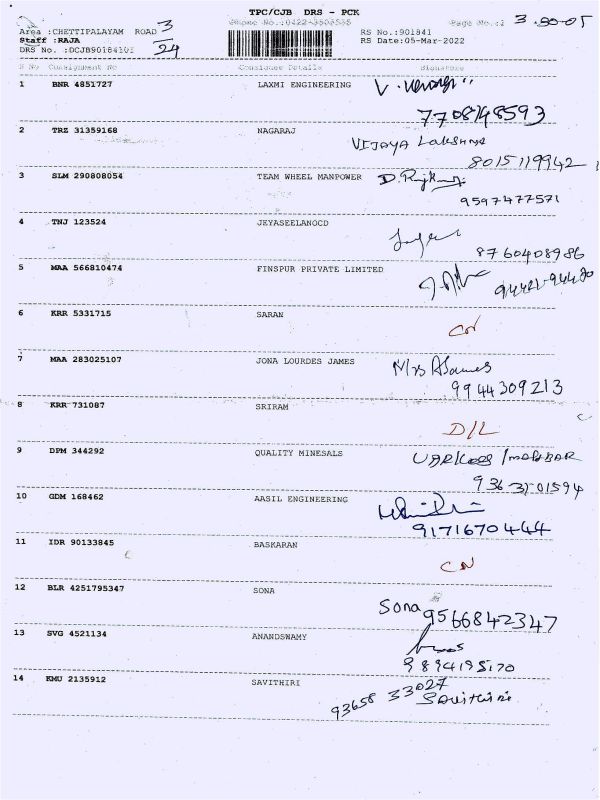 TPC/CJB DRS - PCK
Phone No.:0422-3503535 Page No.:1 3.30-05
Area :CHETTIPALAYAM ROAD 3/24 RS No.:901841
Staff :RAJA RS Date:05-Mar-2022
DRS No. :DCJB90184101
S No Consignment No Consignee Details Signature
1 BNR 4851727 LAXMI ENGINEERING
7708748593
2 TRZ 31359168 NAGARAJ VIJAYA Lakshmi
8015119942
3 SLM 290808054 TEAM WHEEL MANPOWER
9597477571
4 TNJ 123524 JEYASEELANOCD
8760408986
5 MAA 566810474 FINSPUR PRIVATE LIMITED
94421-94420
6 KRR 5331715 SARAN
CN
7 MAA 283025107 JONA LOURDES JAMES Mrs James
9944309213
8 KRR 731087 SRIRAM
D/L
9 DPM 344292 QUALITY MINESALS
10 GDM 168462 AASIL ENGINEERING
9171670444
11 IDR 90133845 BASKARAN
CN
12 BLR 4251795347 SONA Sona 9566842347
13 SVG 4521134 ANANDSWAMY
9894195170
14 KMU 2135912 SAVITHIRI 93658 33027
Savithiri